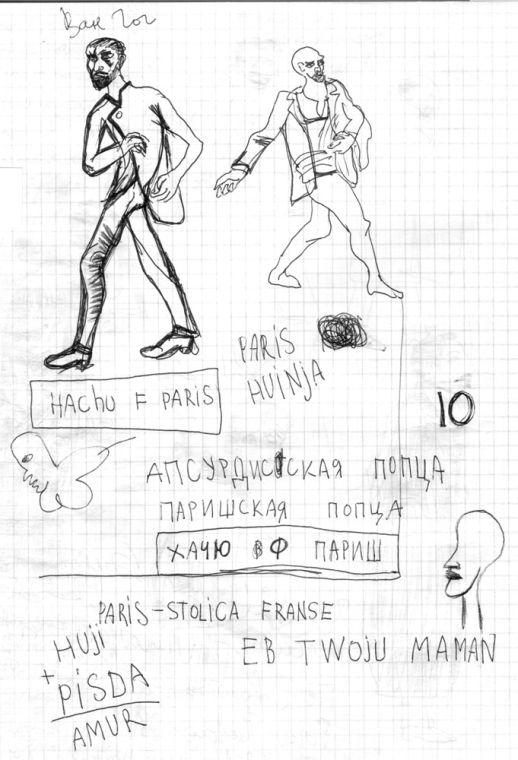 Ван Гог
PARIS
HUINJA
HACHU F PARIS
10
АПСУРДИСТСКАЯ ПОПЦА
ПАРИШСКАЯ ПОПЦА
ХАЧЮ Ф ПАРИШ
PARIS-STOLICA FRANSE
EB TWOJU MAMAN
HUJI
+
PISDA
AMUR